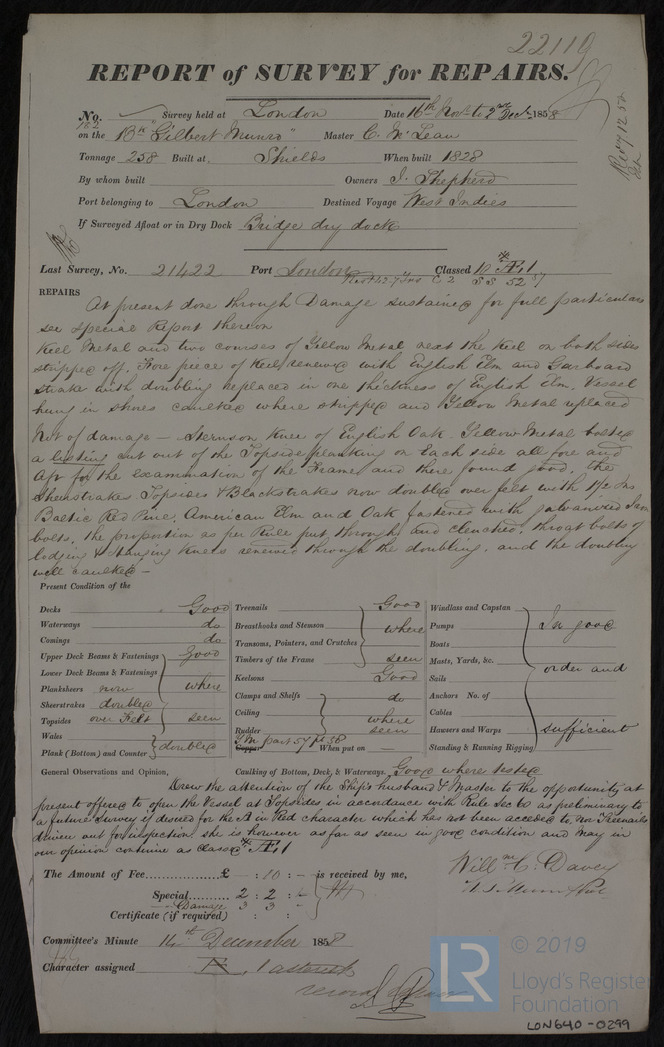 22119
REPORT of SURVEY for REPAIRS.
No. Survey held at London Date 16th Novr to 2nd Decr 1858
on the Bk "Gilbert Munro" Master C. McLean
Tonnage 258 Built at Shields When built 1828
By whom built Owners J. Shepherd
Port belonging to London Destined Voyage West Indies
If Surveyed Afloat or in Dry Dock Bridge dry dock
Last Survey, No. 21422 Port London Classed
REPAIRS
At present done through Damage sustained for full particulars
see special Report thereon
Keel Metal and two courses of Yellow Metal next the Keel on both sides
stripped off. Fore piece of Keel renewed with English Elm and Garboard
strake with doubling replaced in one thickness of English Elm. Vessel
hung in shores caulked where stripped and Yellow Metal replaced
Not of damage - Sternson Knee of English Oak. Yellow Metal bolted
a listing cut out of the Topside planking on each side all fore and
Aft for the examination of the Frame, and there found good. the
Sheerstrakes Topsides & Blackstrakes now doubled over felt with 1½ Ins
Baltic Red Pine, American Elm and Oak fastened with galvanized Iron
bolts, the proportion as per Rule put through and clenched. throat bolts of
lodging & Hanging Knees renewed through the doubling, and the doubling
well caulked -
Present Condition of the
Decks Good
Waterways do
Comings do
Upper Deck Beams & Fastenings good
Lower Deck Beams & Fastenings
Planksheers now where
Sheerstrakes doubled
Topsides over Felt seen
Wales
Plank (Bottom) and Counter doubled
Treenails Good
Breasthooks and Stemson where
Transoms, Pointers, and Crutches
Timbers of the Frame seen
Keelsons Good
Clamps and Shelfs do
Ceiling where
Rudder seen
Copper Y M part 57 pt 58 When put on -
Windlass and Capstan
Pumps In good
Boats
Masts, Yards, &c. order and
Sails
Anchors No. of
Cables
Hawsers and Warps sufficient
Standing & Running Rigging
General Observations and Opinion, Caulking of Bottom, Deck, & Waterways, Good where tested
Drew the attention of the Ship's husband & Master to the opportunity at
present offered to open the Vessel at Topsides in accordance with Rule Sec 60 as preliminary to
a future survey if desired for the A in Red character which has not been acceded to, nor Treenails
driven out for inspection. she is however as far as seen in good condition and may in
our opinion continue as classed Æ 1
The Amount of Fee £ : 10 : - is received by me,
Special 2 : 2 : -
Damage 3 3 -
Certificate (if required) : :
Willm C. Davey
Committee's Minute 14th December 1858
Character assigned
© 2019
LR
Lloyd's Register
Foundation
LON640-0299